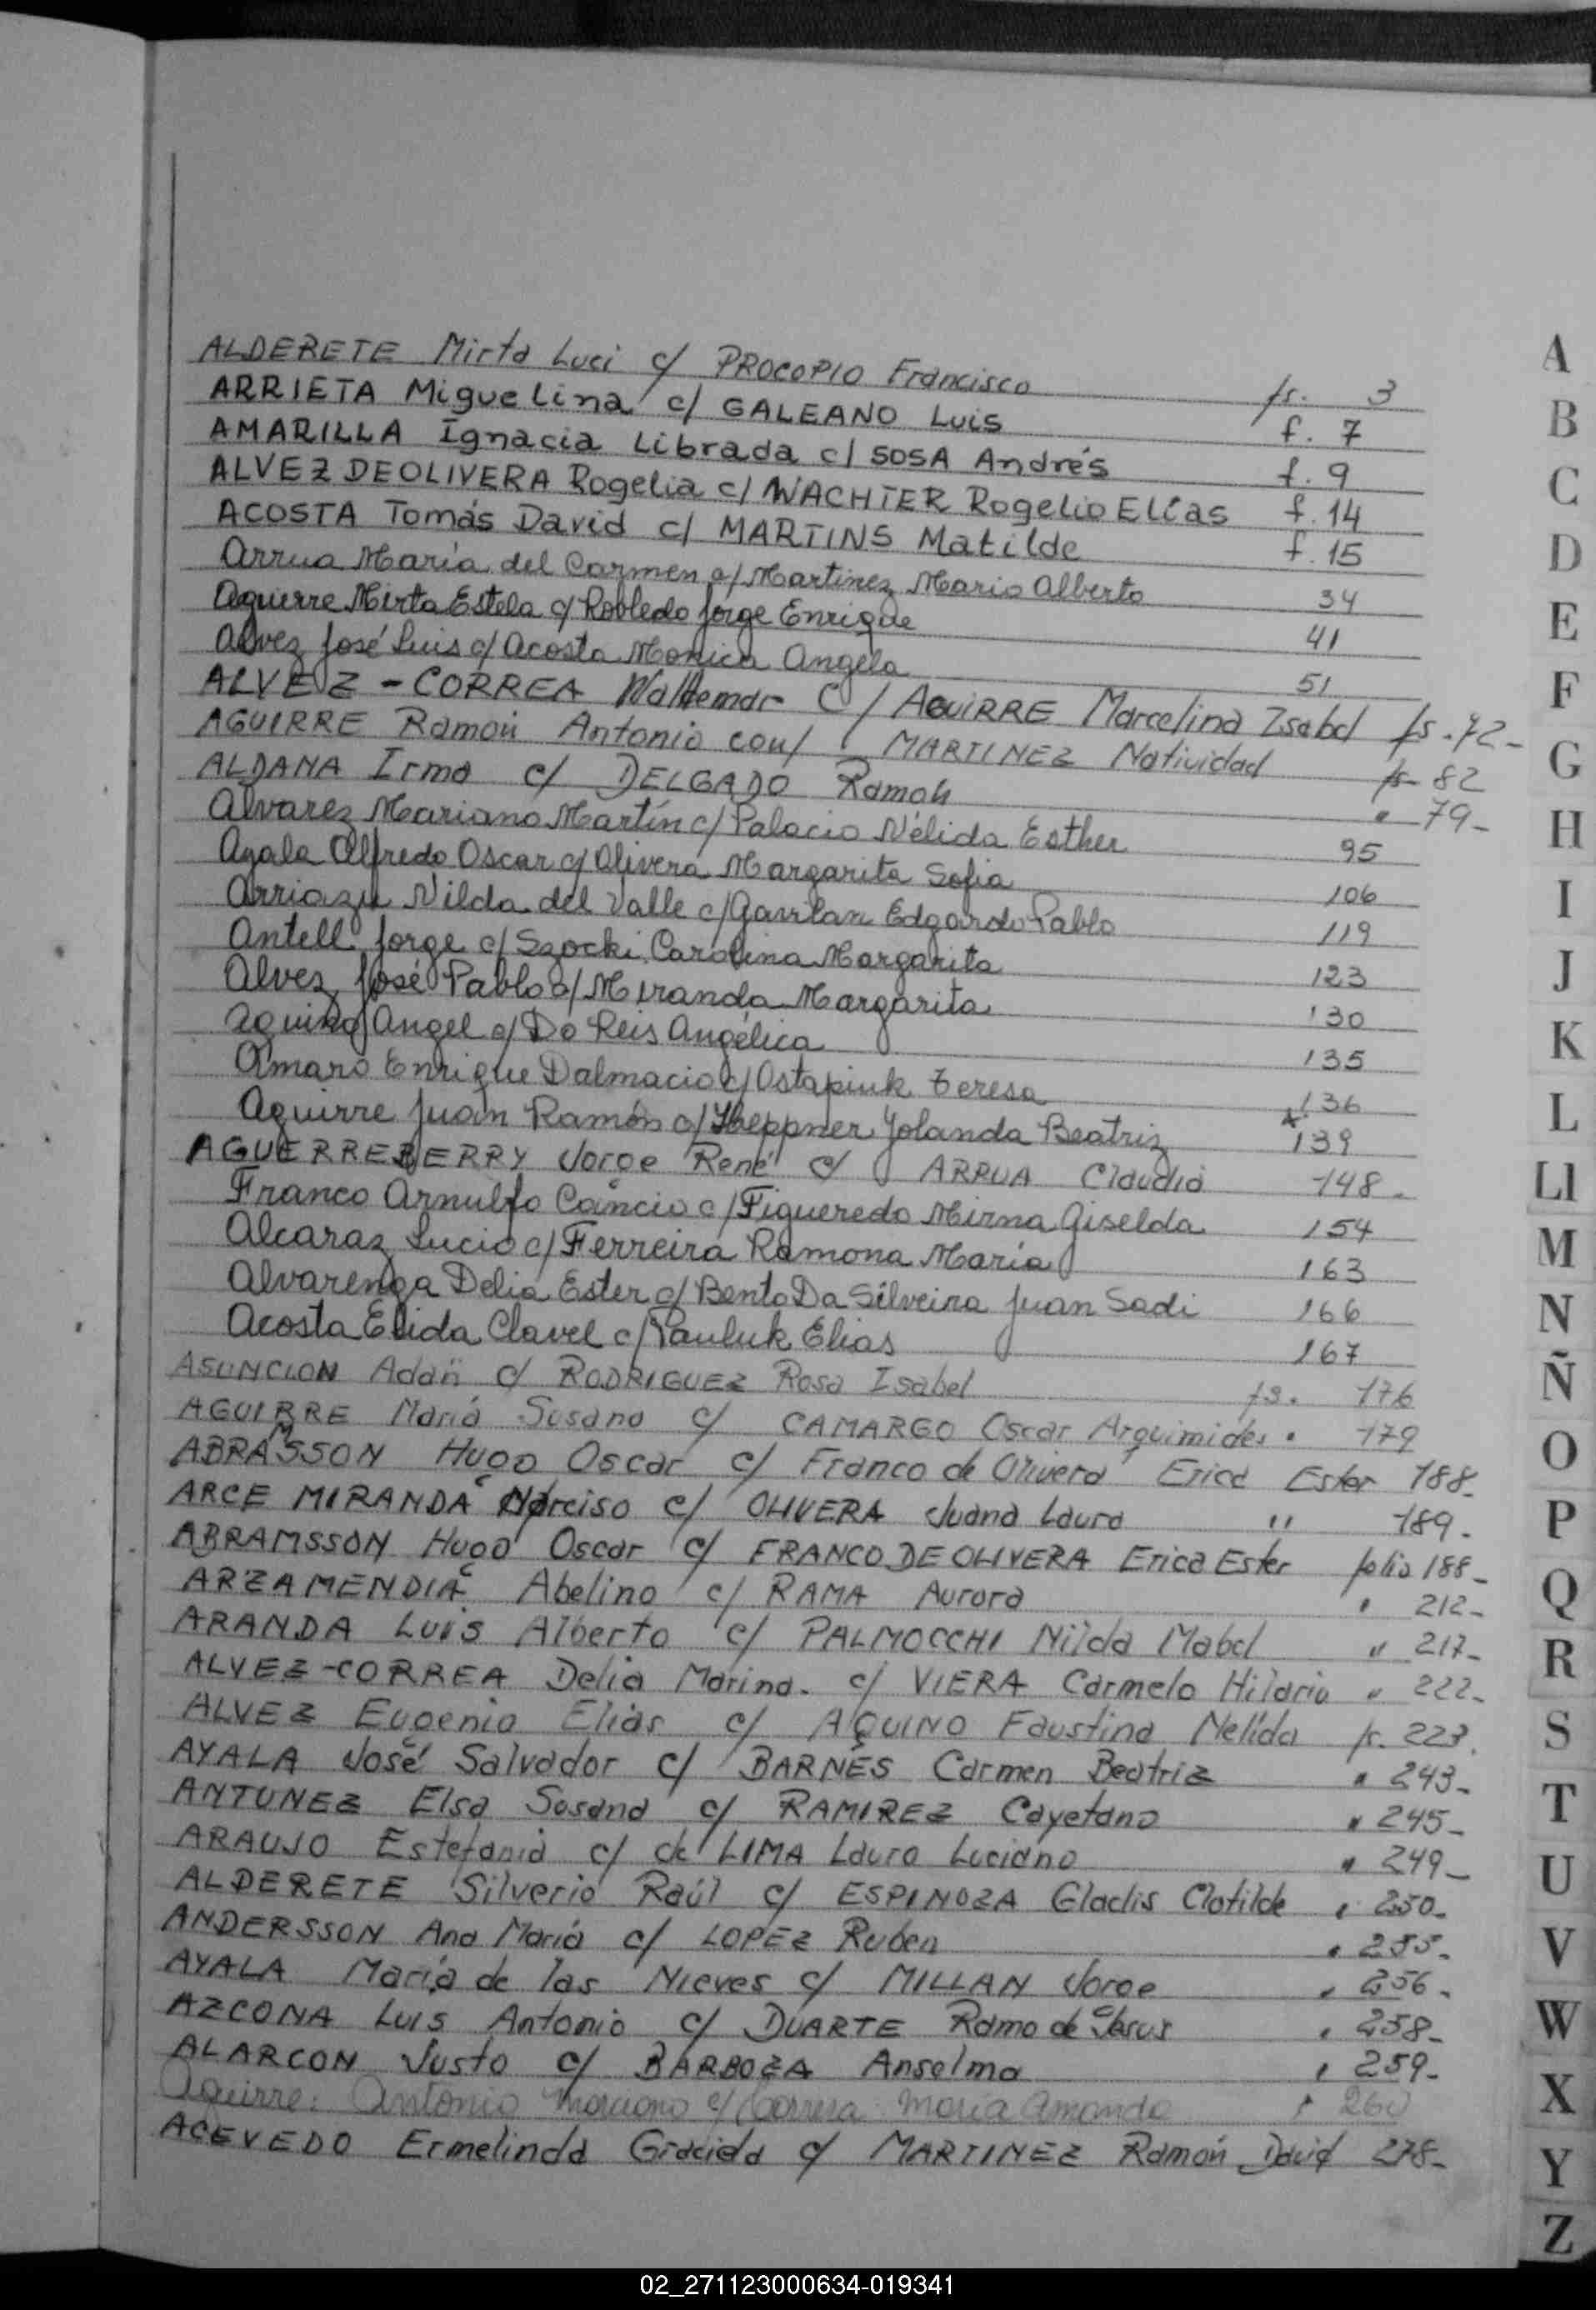 ALDERETE Mirta Luci c/ PROCOPIO Francisco fs. 3
ARRIETA Miguelina c/ GALEANO Luis f. 7
AMARILLA Ignacia Librada c/ SOSA Andrés f. 9
ALVEZ DEOLIVERA Rogelia c/ WACHTER Rogelio Elías f. 14
ACOSTA Tomás David c/ MARTINS Matilde f. 15
Arrua María del Carmen c/ Martinez Mario Alberto 34
Aguirre Mirta Estela c/ Robledo Jorge Enrique 41
Alvez José Luis c/ Acosta Monica Angela 51
ALVEZ - CORREA Waldemar C/ AGUIRRE Marcelina Isabel fs. 72-
AGUIRRE Ramón Antonio con/ MARTINEZ Natividad fs- 82
ALDANA Irma c/ DELGADO Ramón " 79-
Alvarez Mariano Martín c/ Palacio Nélida Esther 95
Ayala Alfredo Oscar c/ Olivera Margarita Sofia 106
Arriazu Nilda del Valle c/ Gavilan Edgardo Pablo 119
Antell Jorge c/ Szocki Carolina Margarita 123
Alvez José Pablo c/ Miranda Margarita 130
Aquino Angel c/ Do Reis Angélica 135
Amaro Enrique Dalmacio c/ Ostapiuk Teresa 136
Aguirre Juan Ramón c/ Yolanda Beatriz 139
AGUERREBERRY Jorge René c/ ARRUA Claudia 148.
Franco Arnulfo Cancio c/ Figueredo Mirna Giselda 154
Alcaraz Lucio c/ Ferreira Ramona María 163
Alvarenga Delia Ester c/ Bento Da Silveira Juan Sadi 166
Acosta Elida Clavel c/ Pauluk Elias 167
ASUNCION Adán c/ RODRIGUEZ Rosa Isabel fs. 176
AGUIRRE María Susana c/ CAMARGO Oscar Arquimides " 179
ABRAMSSON Hugo Oscar c/ Franco de Olivera Erica Ester 188-
ARCE MIRANDA Narciso c/ OLIVERA Juana Laura " 189-
ABRAMSSON Hugo Oscar c/ FRANCO DE OLIVERA Erica Ester folio 188-
ARZAMENDIA Abelino c/ RAMA Aurora " 212-
ARANDA Luis Alberto c/ PALMOCCHI Nilda Mabel " 217-
ALVEZ-CORREA Delia Marina. c/ VIERA Carmelo Hilario " 222-
ALVEZ Eugenio Elias c/ AQUINO Faustina Nelida fs. 223.
AYALA José Salvador c/ BARNES Carmen Beatriz " 243-
ANTUNEZ Elsa Susana c/ RAMIREZ Cayetano " 245-
ARAUJO Estefania c/ de LIMA Lauro Luciano " 249-
ALDERETE Silverio Raúl c/ ESPINOZA Gladis Clotilde " 250-
ANDERSSON Ana María c/ LOPEZ Ruben " 255-
AYALA María de las Nieves c/ MILLAN Jorge " 256-
AZCONA Luis Antonio c/ DUARTE Ramo de Jesus " 258-
ALARCON Justo c/ BARBOZA Anselma " 259-
Aguirre: Antonio Marciano c/ Correa Maria Amanda " 260
ACEVEDO Ermelinda Graciela c/ MARTINEZ Ramón David 278-
A
B
C
D
E
F
G
H
I
J
K
L
Ll
M
N
Ñ
O
P
Q
R
S
T
U
V
W
X
Y
Z
02_271123000634-019341